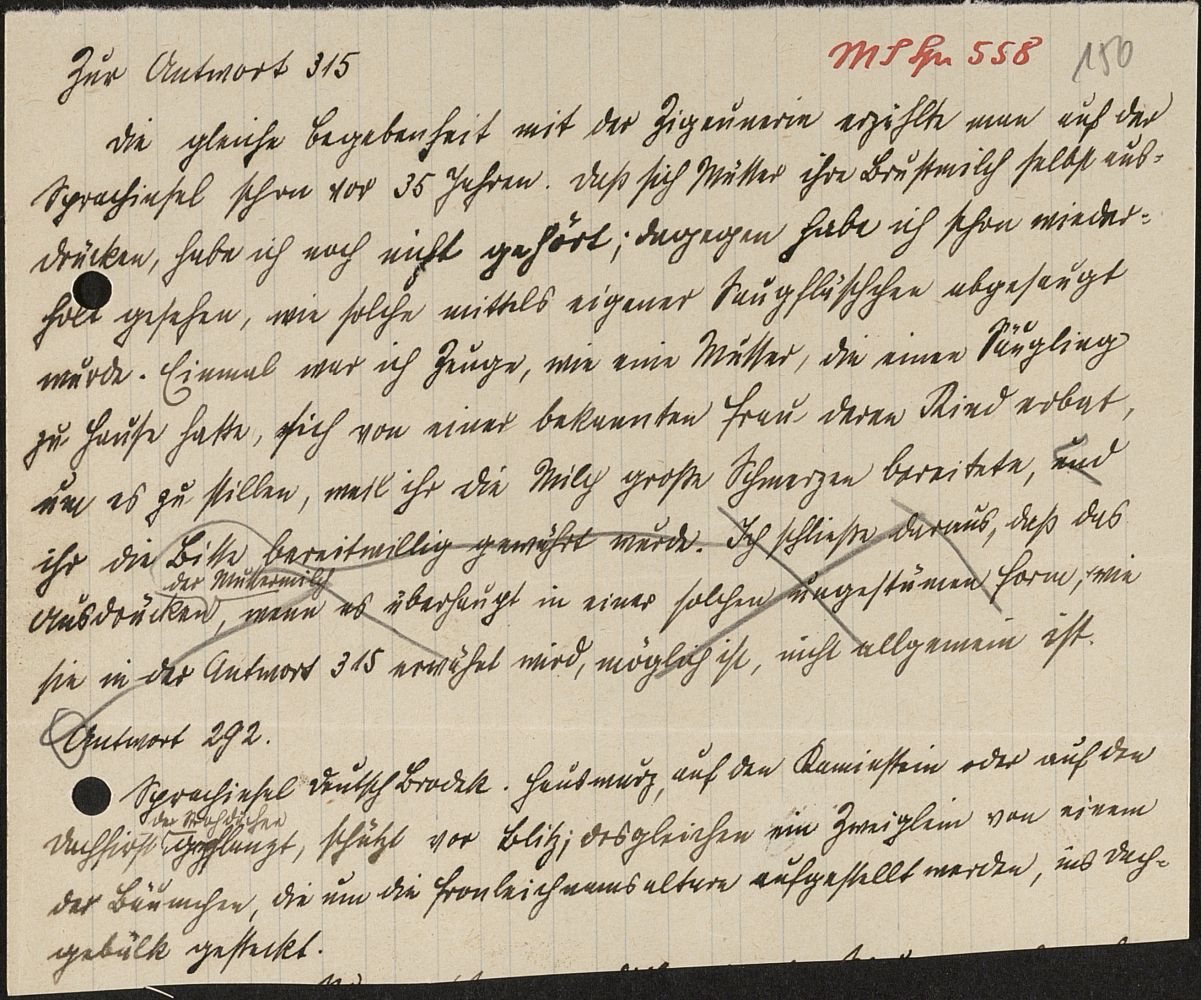 Zur Antwort 315
MS Spr 558
150
Die gleiche Begebenheit mit der Zigeunerin erzählte man auf der
Sprachinsel schon vor 35 Jahren. Daß sich Mütter ihre Brustmilch selbst aus-
drücken, habe ich noch nicht gehört; dagegen habe ich schon wieder-
holt gesehen, wie solche mittels eigener Saugfläschchen abgesaugt
wurde. Einmal war ich Zeuge, wie eine Mutter, die einen Säugling
zu Hause hatte, sich von einer bekannten Frau deren Kind erbat,
um es zu stillen, weil ihr die Milch große Schmerzen bereitete, und
ihr die Bitte bereitwillig gewährt wurde. Ich schließe daraus, daß das
der Muttermilch
Ausdrücken, wenn es überhaupt in einer solchen ungestümen Form, wie
sie in der Antwort 315 erwähnt wird, möglich ist, nicht allgemein ist.
Antwort 292.
Sprachinsel Deutsch Brodek. Hauswurz, auf den Kaminstein oder auf den
der Strohdächer
Dachfirst gepflanzt, schützt vor Blitz; desgleichen ein Zweiglein von einem
der Bäumchen, die um die Fronleichnamsaltare aufgestellt werden, ins Dach-
gebälk gesteckt.